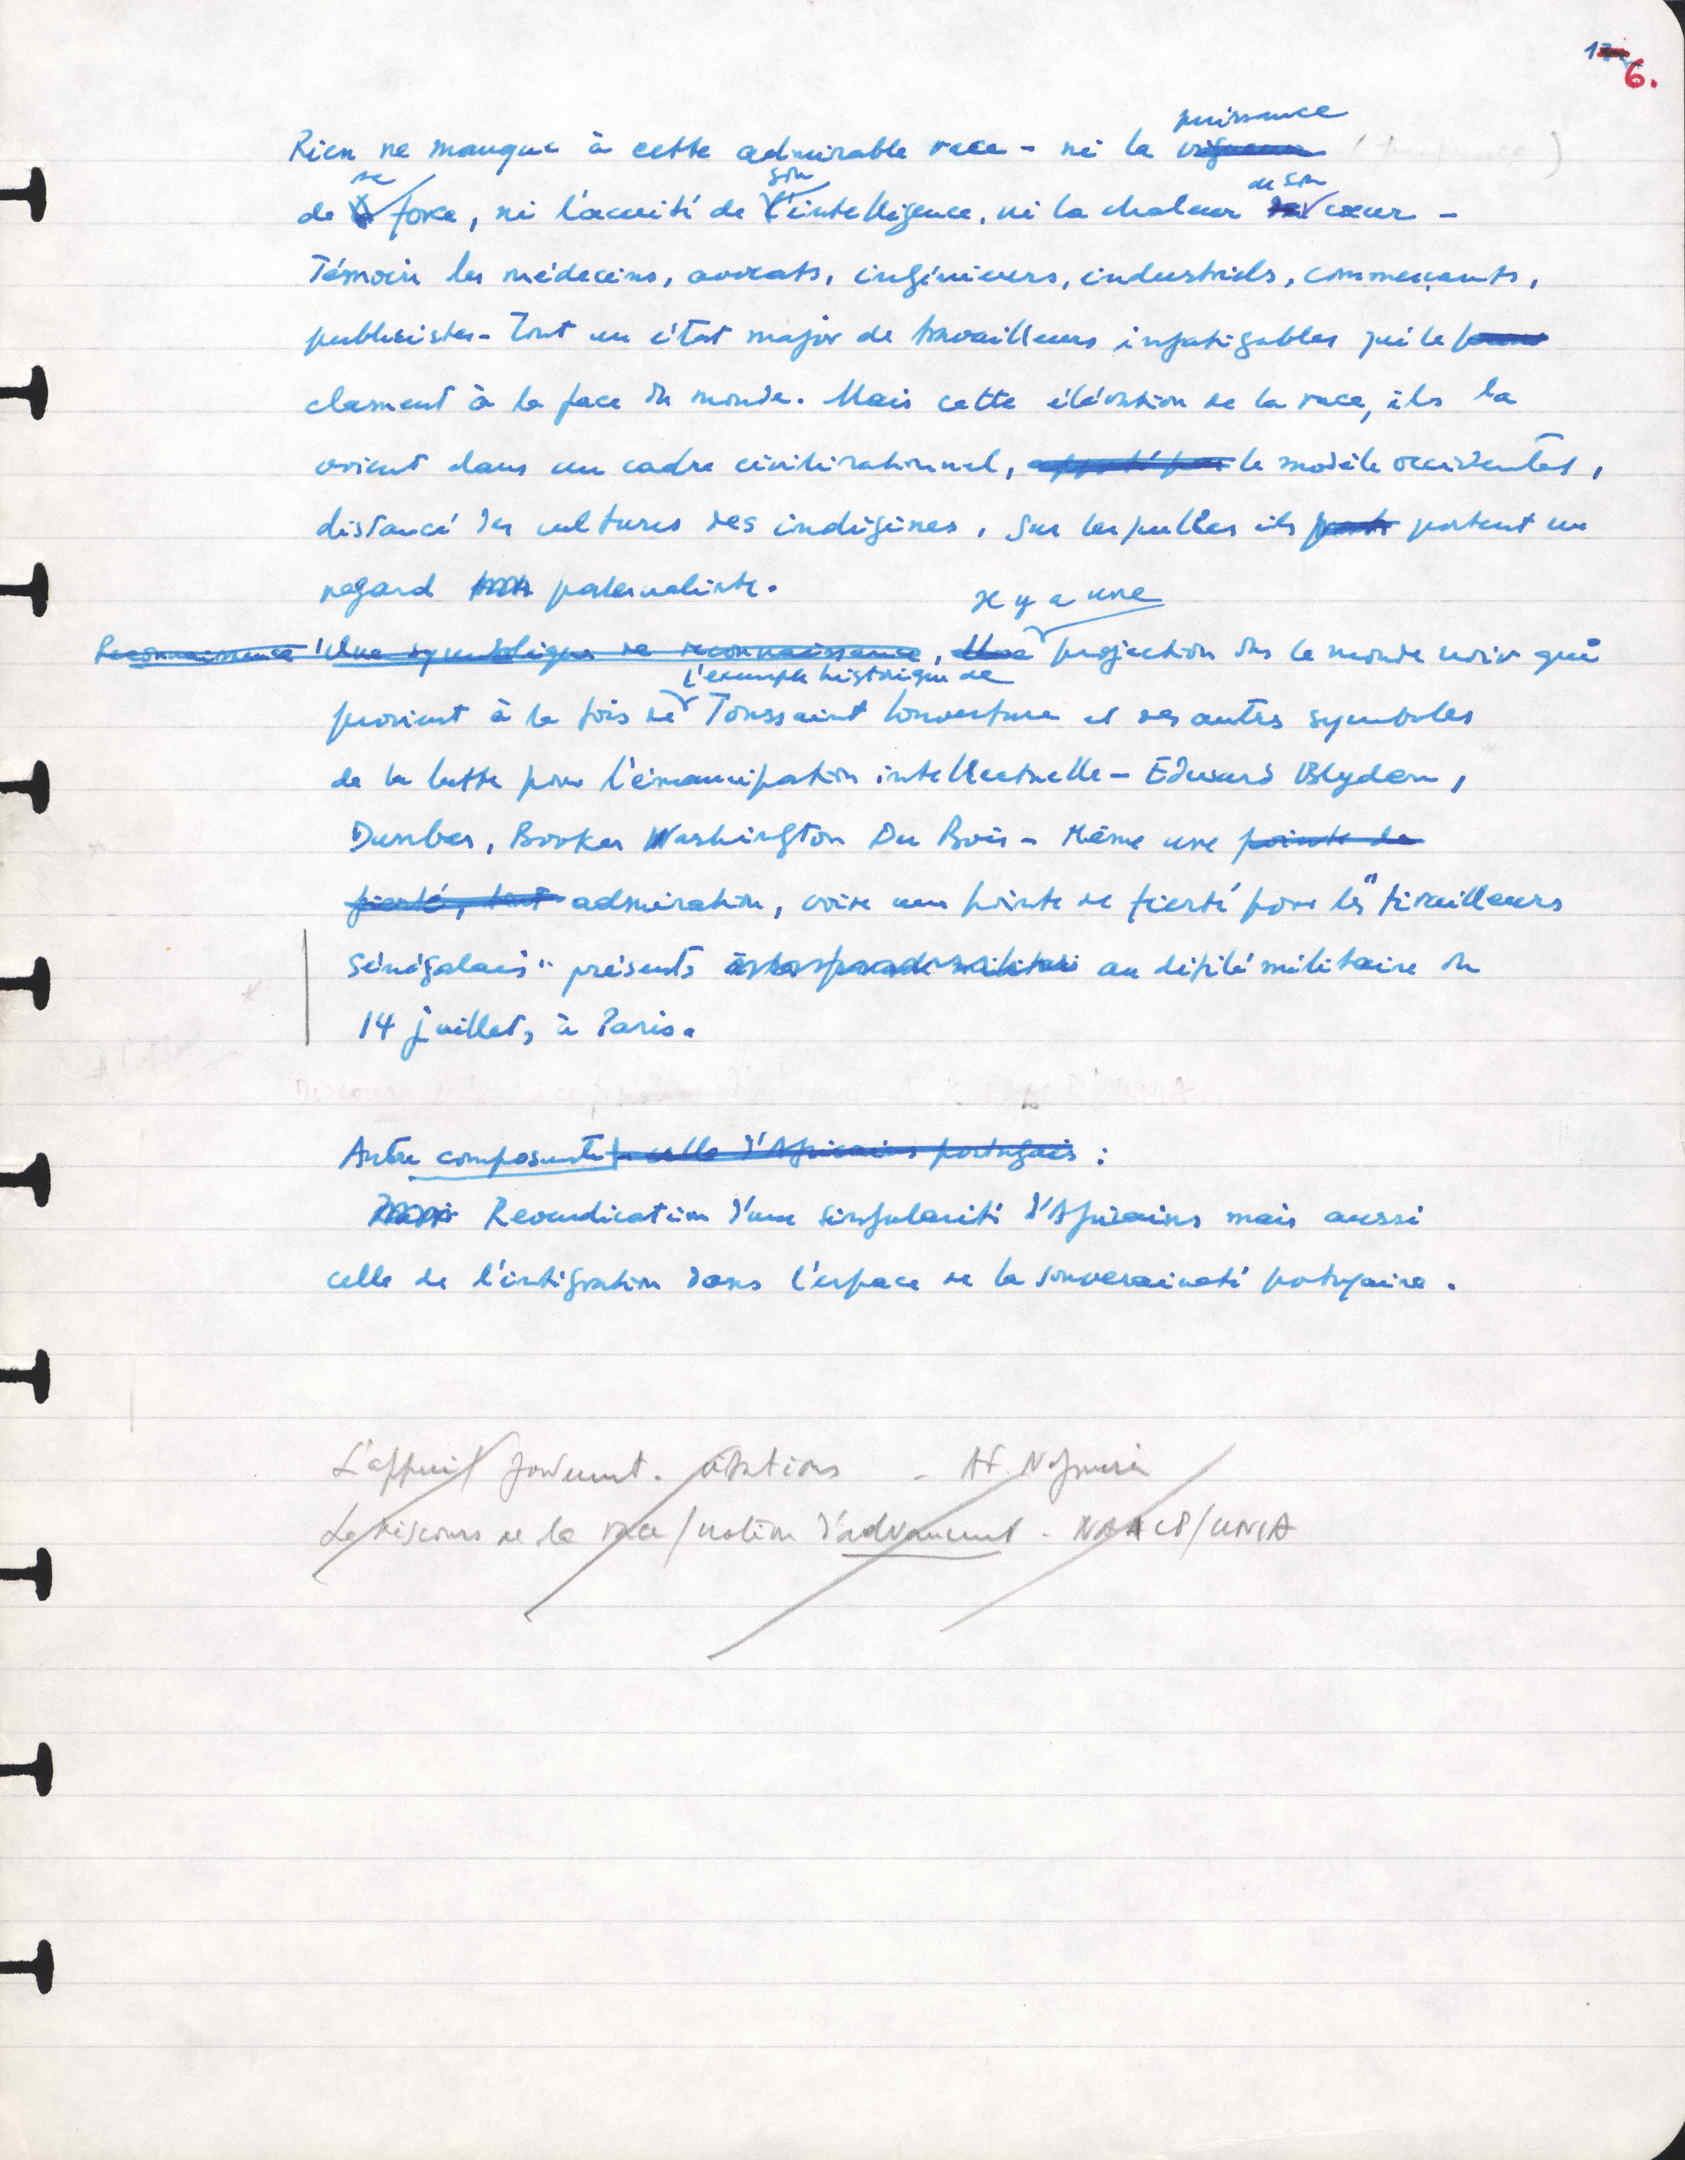 6.
puissance
Rien ne manque à cette admirable race - ni la vigueur
sa son de son
de la force, ni l'acuité de l'intelligence, ni la chaleur cœur -
Témoin les médecins, avocats, ingénieurs, industriels, commerçants,
publicistes - Tout un état major de travailleurs infatigables qui le
clament à la face du monde. Mais cette élévation de la race, ils la
voient dans un cadre civilisationnel, le modèle occidental,
distancé des cultures des indigènes, sur lesquelles ils portent un
regard paternaliste.
Il y a une
Reconnaissance Une symbolique de reconnaissance, Une projection du le monde noir qui
l'exemple historique de
provient à la fois de Toussaint Louverture et des autres symboles
de la lutte pour l'émancipation intellectuelle - Edward Blyden,
Dunbar, Booker Washington Du Bois - Même une pointe de
fierté, tout admiration, voire une pointe de fierté pour les "tirailleurs
Sénégalais" présents au défilé militaire du
14 juillet, à Paris.
Autre composante celle d'Africains portugais :
Revendication d'une singularité d'Africains mais aussi
celle de l'intégration dans l'espace de la souveraineté portugaise.
L'appui citations -
Le discours de la race / notion d'advancement - NAACP/UNIA